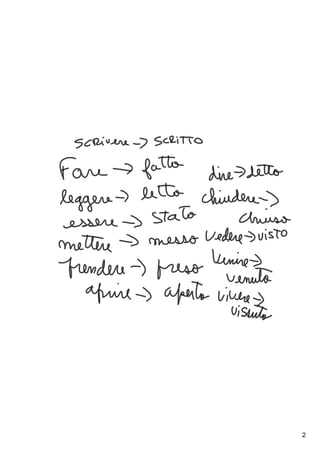 SCRIVERE → SCRITTO
Fare → fatto
dire → detto
leggere → letto
chiudere →
chiuso
essere → stato
mettere → messo
vedere → visto
prendere → preso
venire →
venuto
aprire → aperto
vivere →
vissuto
2